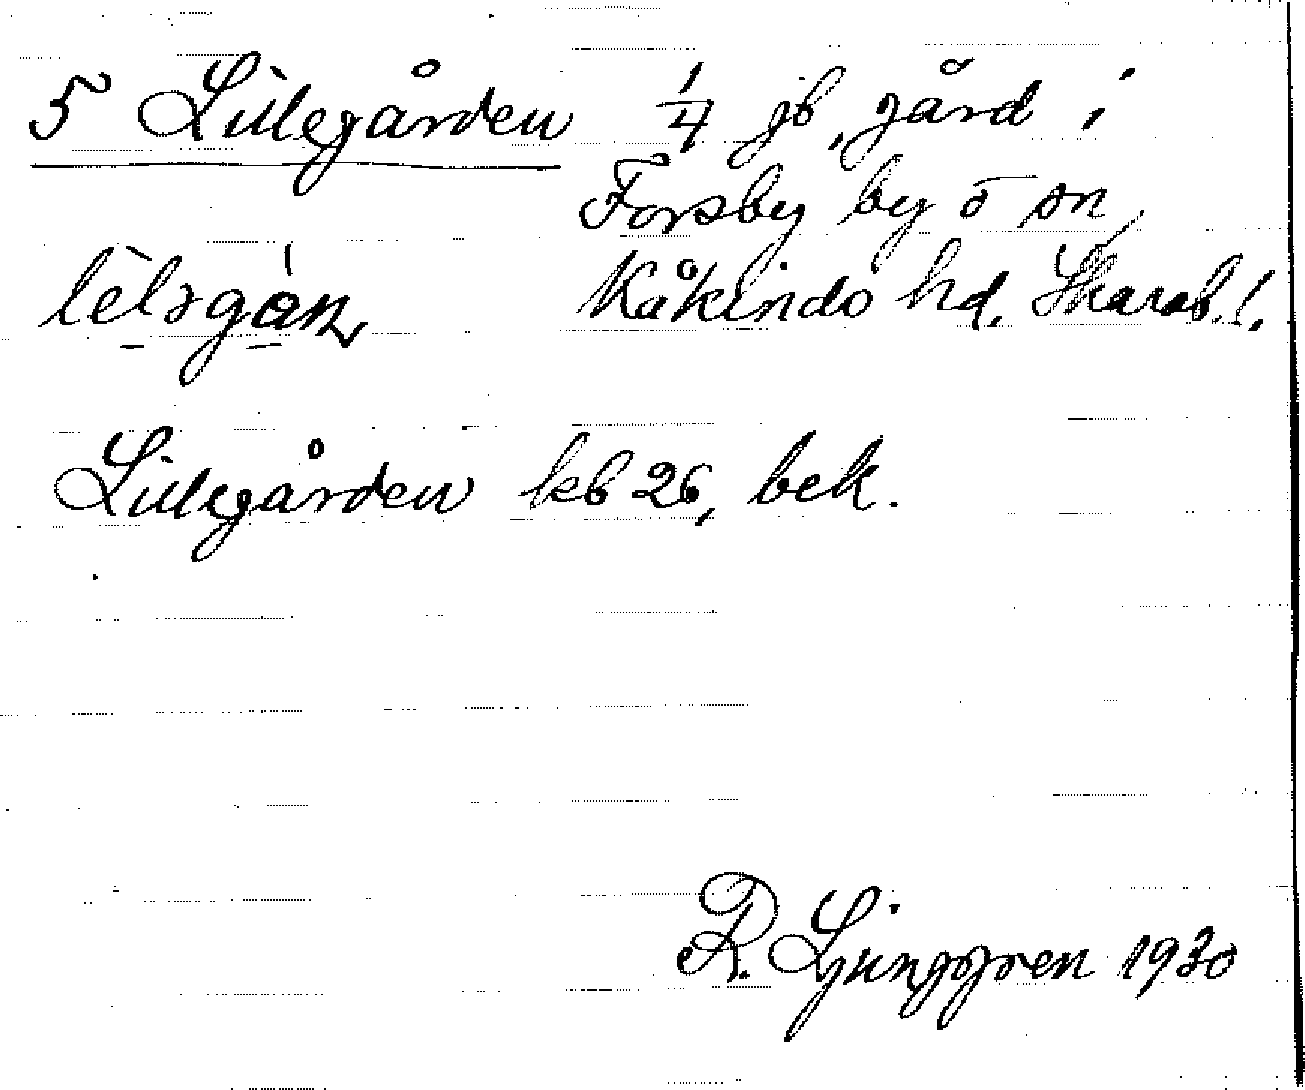 5 Lillegården 1/4 jb, gård i
Forsby by o sn,
Kåkinds hd. Skarab. l.
Lillegården kb 26, bek.
R. Ljunggren 1930